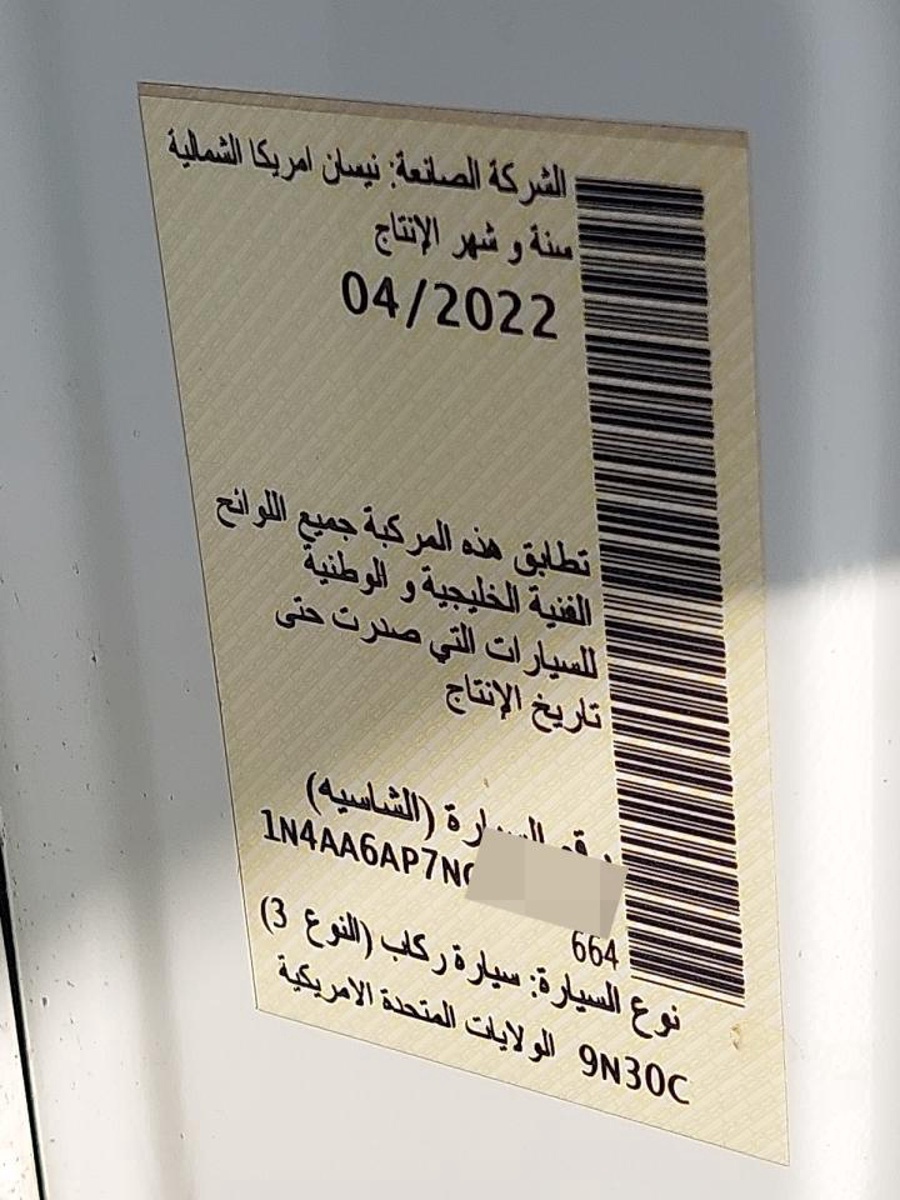 الشركة الصانعة: نيسان امريكا الشمالية
سنة و شهر الإنتاج
04/2022
تطابق هذه المركبة جميع اللوائح
الفنية الخليجية و الوطنية
للسيارات التي صدرت حتى
تاريخ الإنتاج
رقم السيارة (الشاسيه)
1N4AA6AP7N
664
نوع السيارة: سيارة ركاب (النوع 3)
9N30C الولايات المتحدة الامريكية